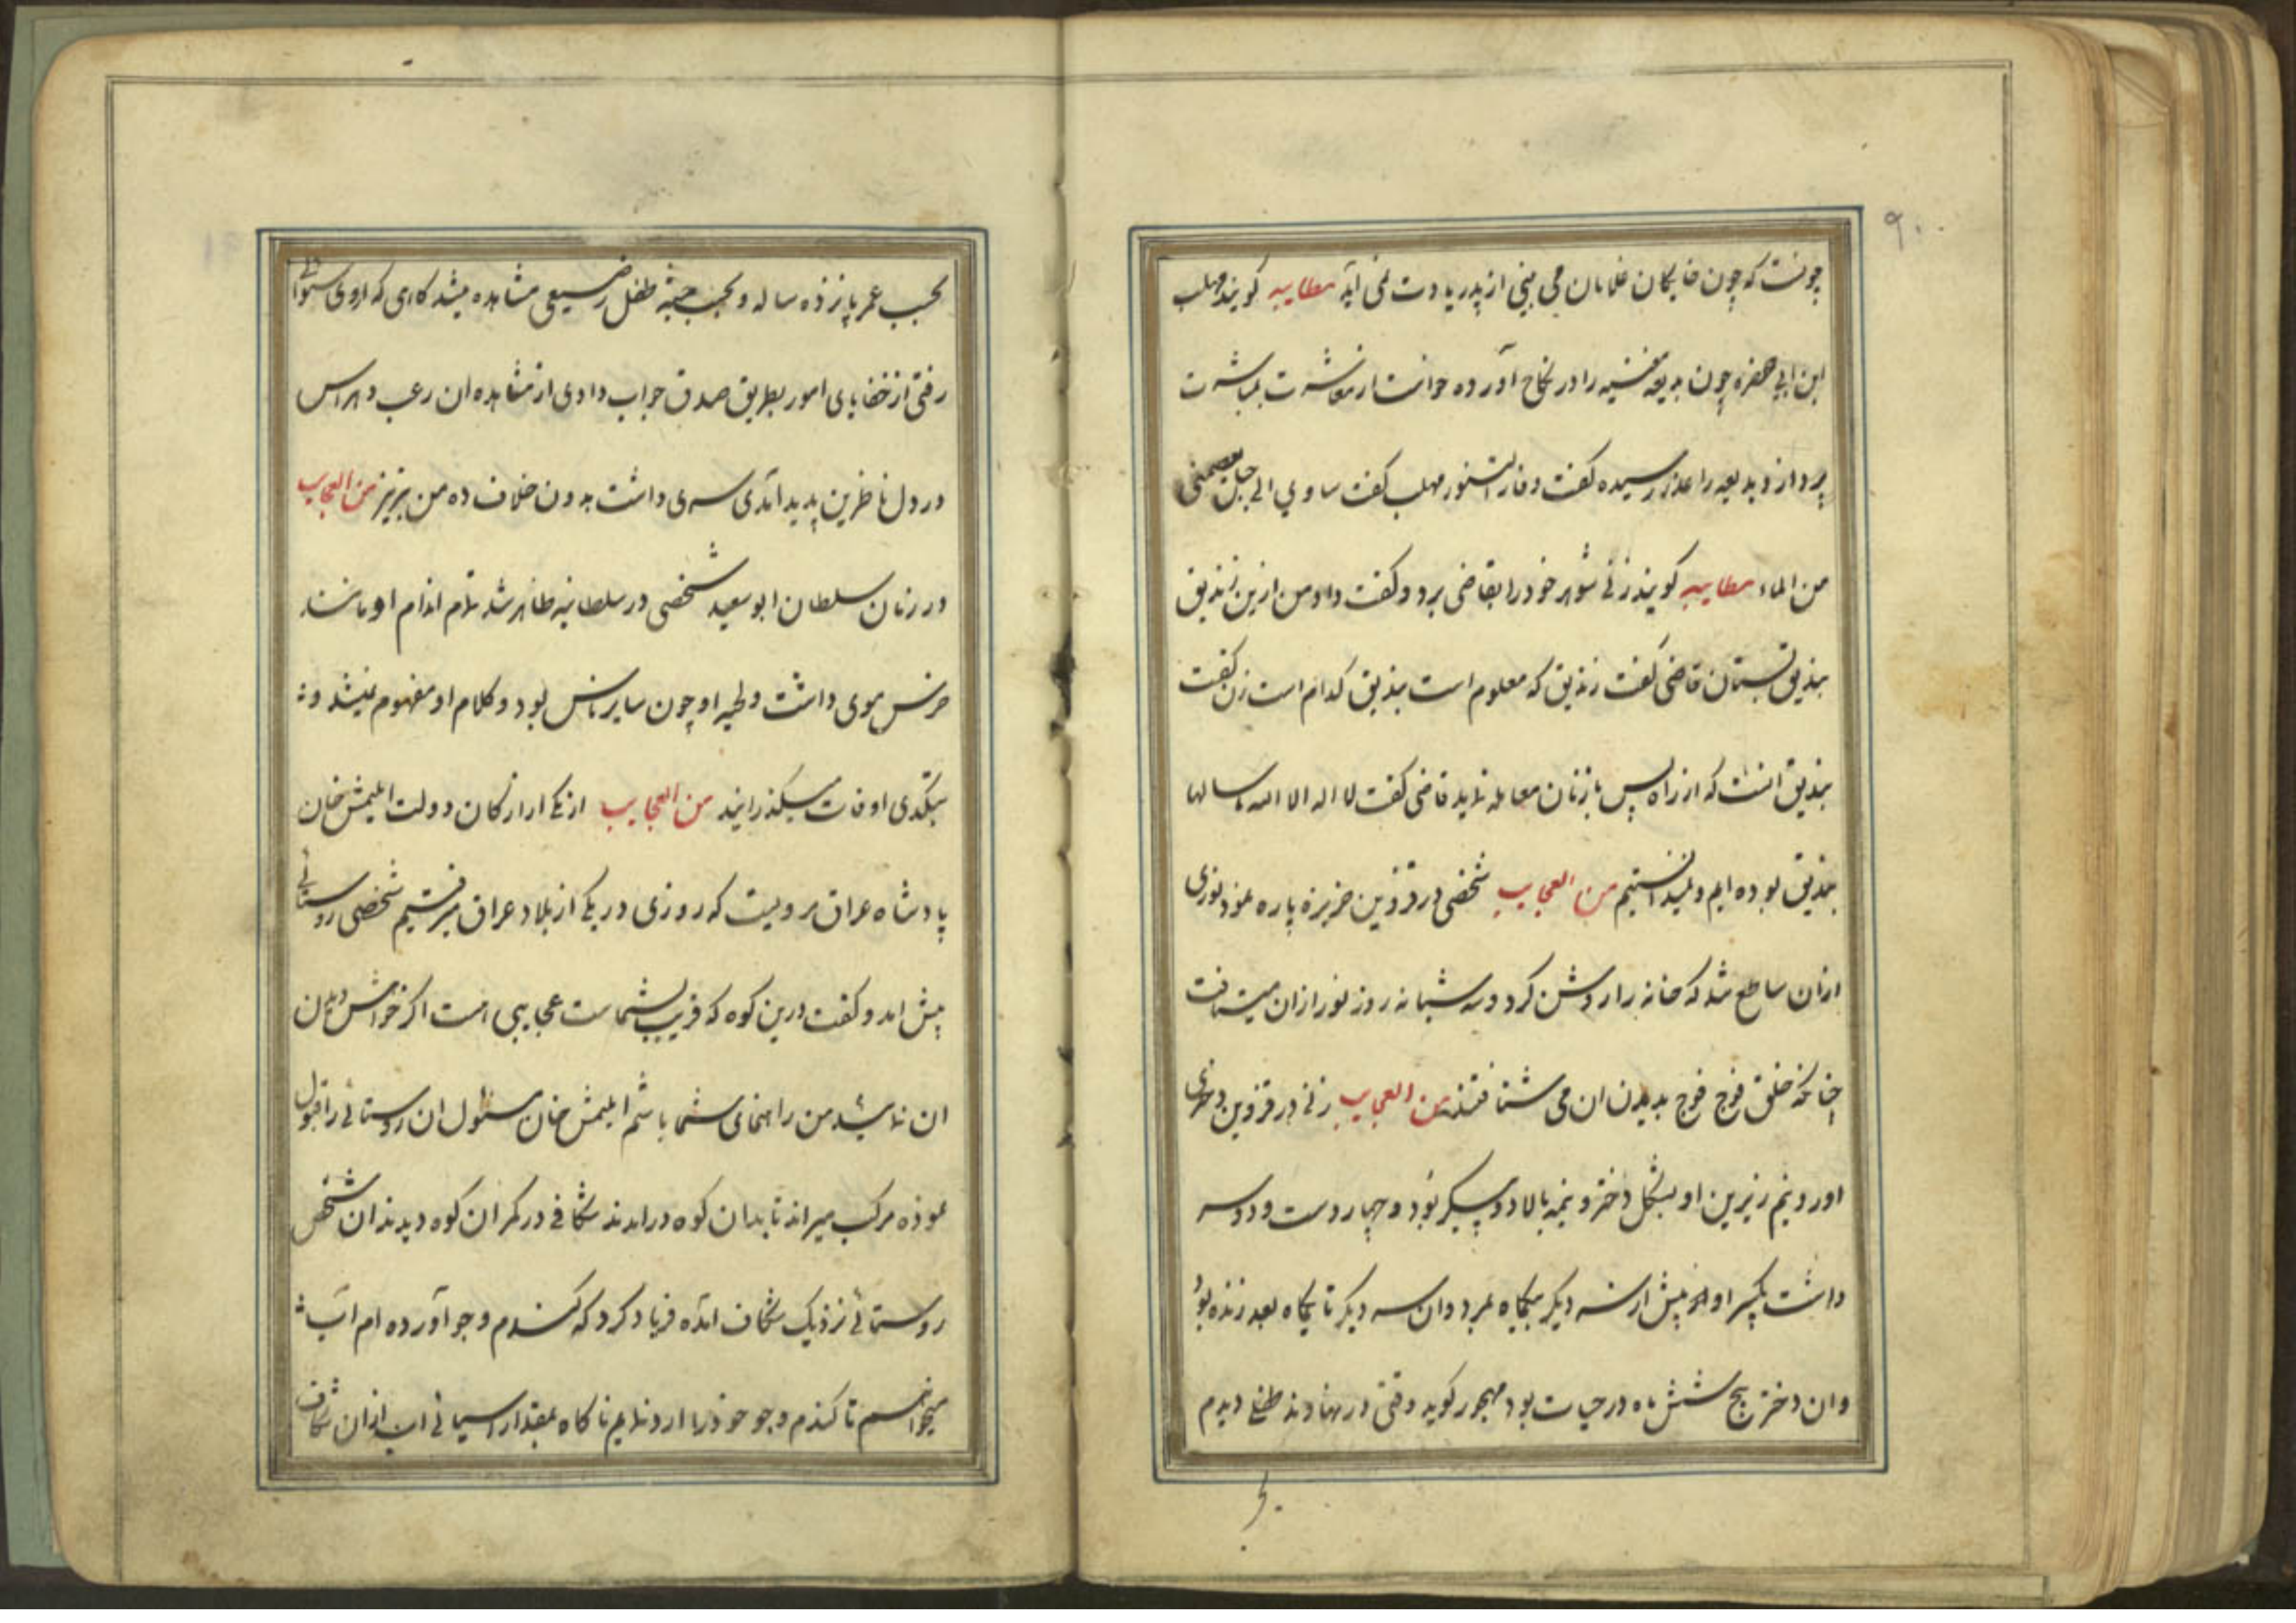 ۹۰
چونست که چون خایکان غلامان می بینی از پدر یادت نمی آید مطایبه کویند مهلب
ابن ابی صفره چون بدیعه مغنیه را در نکاح آورده خواست از معاشرت بمباشرت
پردازد بدیعه را عذر رسیده کفت و فار التنور مهلب کفت ساوي الی جبل یعصمنی
من الماء مطایبه کویند زنی شوهر خود را بقاضی برد و کفت داد من ازین زندیق
بندیق بستان قاضی کفت زندیق که معلوم است بندیق کدام است زن کفت
بندیق انست که از راه پس با زنان معامله نماید قاضی کفت لا اله الا الله ما سالها
بندیق بوده ایم و نمیدانستیم من العجایب شخصی در قزوین خربزه پاره نمود نوری
ازان ساطع شد که خانه را روشن کرد و سه شبانه روز نور ازان میتافت
چنانکه خلق فوج فوج بدیدن ان می شتافتند من العجایب زنی در قزوین دختری
اورد نیم زیرین او بشکل دختر و نیمه بالا دو پیکر بود و چهار دست و دو سر
داشت یکسر او پیش از سر دیکر بیکماه بمرد و ان سر دیکر تا یکماه بعد زنده بود
و ان دختر پنج شش ماه در حیات بود مهجور کوید وقتی در نهاوند طفلی دیدم
بحسب عمر پانزده ساله و بحسب جثه طفل رضیعی مشاهده میشد کاهی که ازوی سئوال
رفتی از خفایای امور بطریق صدق جواب دادی از مشاهده ان رعب و هراس
در دل ناظرین پدید آمدی سری داشت بدون خلاف ده من تبریز من العجایب
در زمان سلطان ابو سعید شخصی در سلطانیه ظاهر شد تمام اندام او مانند
خرس موی داشت و لحیه او چون سایر ناس بود و کلام او مفهوم نمیشد و به
بتکدی اوقات میکذرانید من العجایب از یکی از ارکان دولت ایلمیش خان
پادشاه عراق مرویست که روزی در یکی از بلاد عراق میرفتیم شخصی روستائی
پیش امد و کفت درین کوه که قریب بشماست عجایبی است اکر خواهش دیدن
ان نمائید من راهنمای شما باشم ایلمیش خان مسئول ان روستائی را قبول
نموده مرکب میراند تا بدان کوه درامدند شکافی در کمر ان کوه دیدند ان شخص
روستائی نزدیک شکاف امده فریاد کرد که کندم و جو آورده ام آب
میخواهم تا کندم و جو خود را ارد نمایم ناکاه بمقدار اسیابی اب ازان شکاف